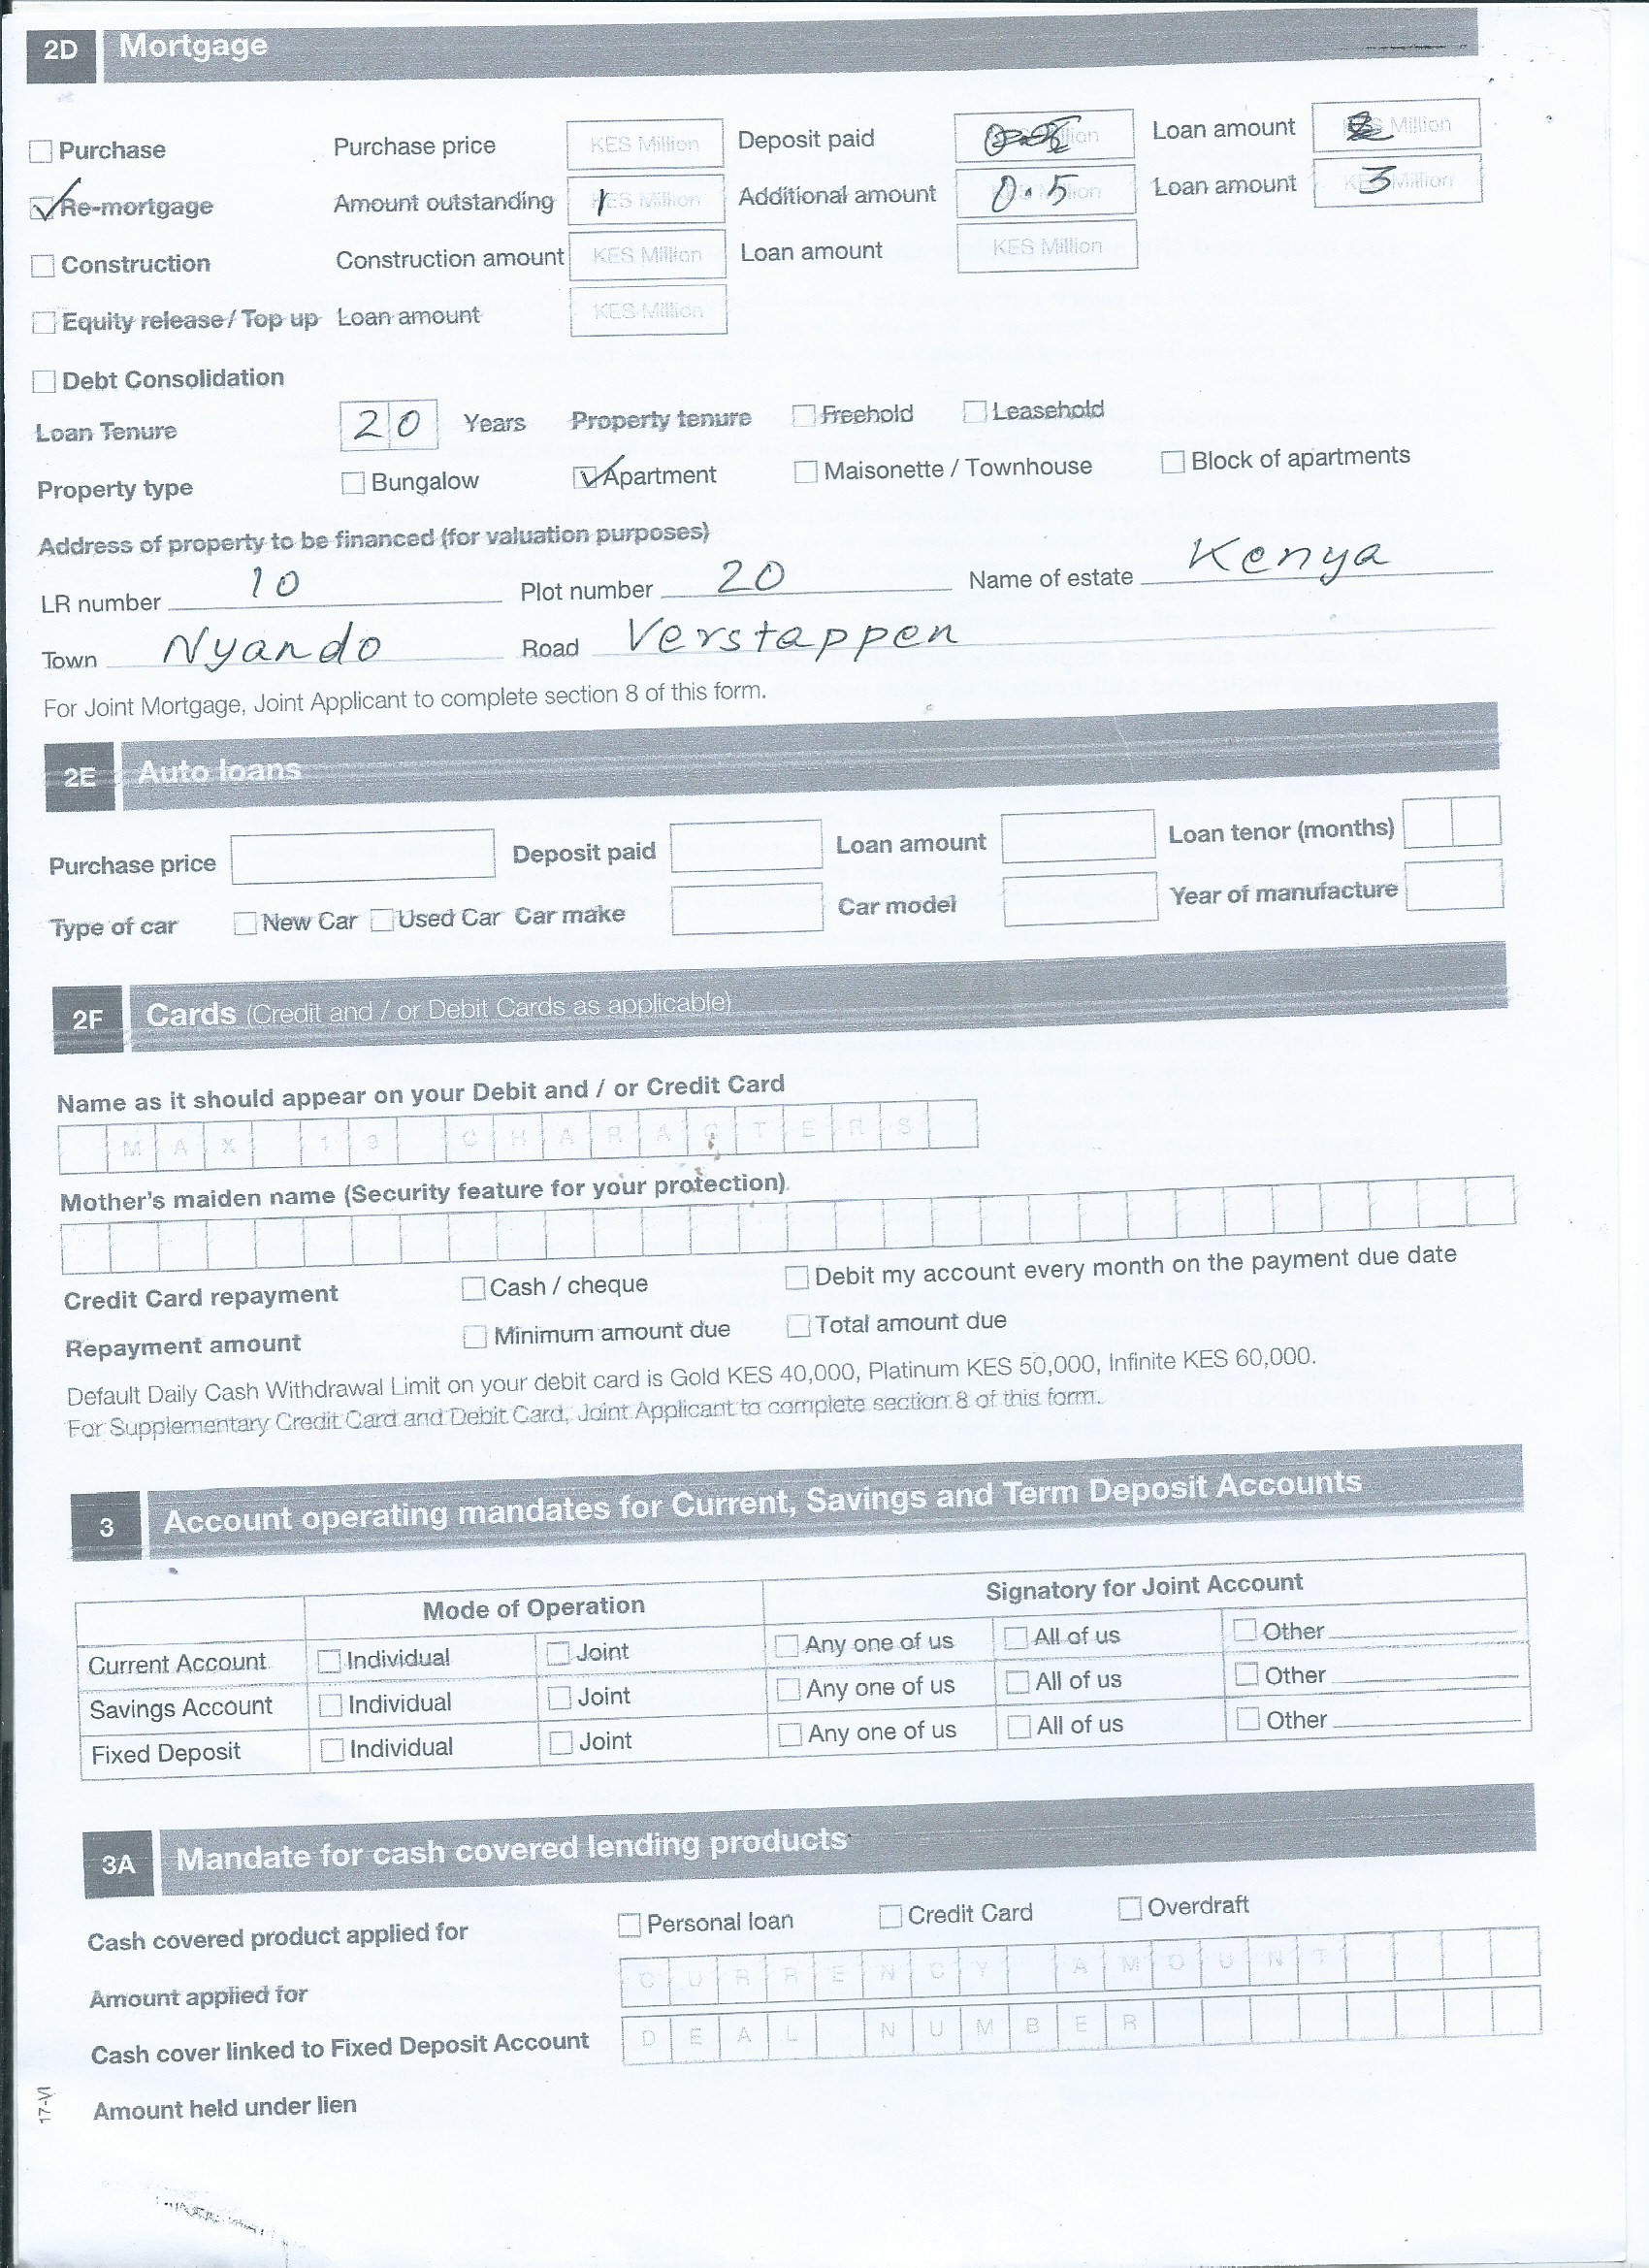 2D Mortgage
Purchase Purchase price KES Million Deposit paid Loan amount Million
Re-mortgage Amount outstanding 1 KES Million Additional amount 0.5 Loan amount 3 KES Million
Construction Construction amount KES Million Loan amount KES Million
Equity release / Top up Loan amount KES Million
Debt Consolidation
Loan Tenure 20 Years Property tenure Freehold Leasehold
Property type Bungalow Apartment Maisonette / Townhouse Block of apartments
Address of property to be financed (for valuation purposes)
LR number 10 Plot number 20 Name of estate Kenya
Town Nyando Road Verstappen
For Joint Mortgage, Joint Applicant to complete section 8 of this form.
2E Auto loans
Purchase price Deposit paid Loan amount Loan tenor (months)
Type of car New Car Used Car Car make Car model Year of manufacture
2F Cards (Credit and / or Debit Cards as applicable)
Name as it should appear on your Debit and / or Credit Card
MAX 19 CHARACTERS
Mother's maiden name (Security feature for your protection)
Credit Card repayment Cash / cheque Debit my account every month on the payment due date
Repayment amount Minimum amount due Total amount due
Default Daily Cash Withdrawal Limit on your debit card is Gold KES 40,000, Platinum KES 50,000, Infinite KES 60,000.
For Supplementary Credit Card and Debit Card, Joint Applicant to complete section 8 of this form.
3 Account operating mandates for Current, Savings and Term Deposit Accounts
Mode of Operation Signatory for Joint Account
Current Account Individual Joint Any one of us All of us Other
Savings Account Individual Joint Any one of us All of us Other
Fixed Deposit Individual Joint Any one of us All of us Other
3A Mandate for cash covered lending products
Cash covered product applied for Personal loan Credit Card Overdraft
Amount applied for CURRENCY AMOUNT
Cash cover linked to Fixed Deposit Account DEAL NUMBER
Amount held under lien
17-VI